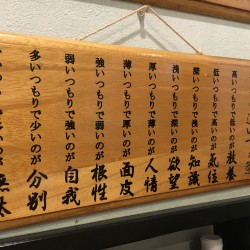 高いつもりで低いのが教養
低いつもりで高いのが気位
深いつもりで浅いのが知識
浅いつもりで深いのが欲望
厚いつもりで薄いのが人情
薄いつもりで厚いのが面皮
強いつもりで弱いのが根性
弱いつもりで強いのが自我
多いつもりで少いのが分別
無駄